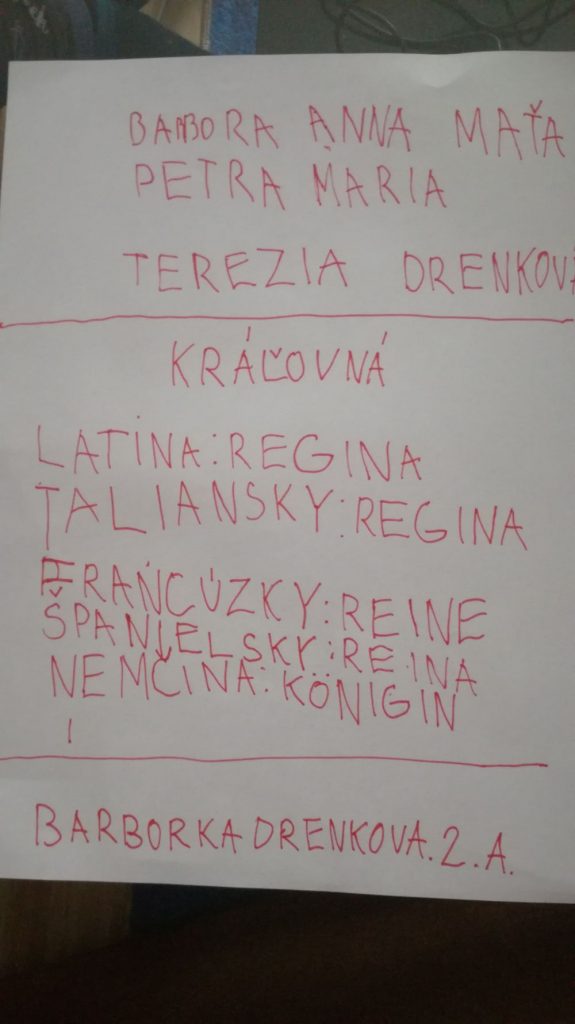 BARBORA ANNA MAŤA
PETRA MARIA
TEREZIA DRENKOVÁ
KRÁĽOVNÁ
LATINA: REGINA
TALIANSKY: REGINA
FRANCÚZKY: REINE
ŠPANIELSKY: REINA
NEMČINA: KÖNIGIN
BARBORKA DRENKOVA. 2. A.